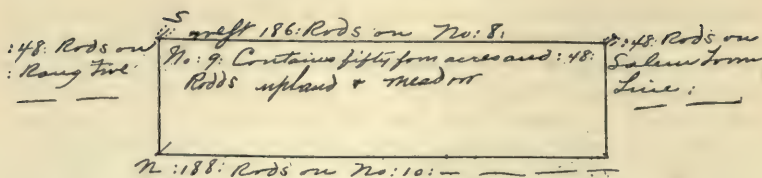 S
west 186: Rods on No: 8:
:48: Rods on
: Rang Five
No: 9: Contains fifty four acres and : 48:
Rodds upland & meadow
:48: Rods on
Salem Town
Line:
N :188: Rods on No: 10: